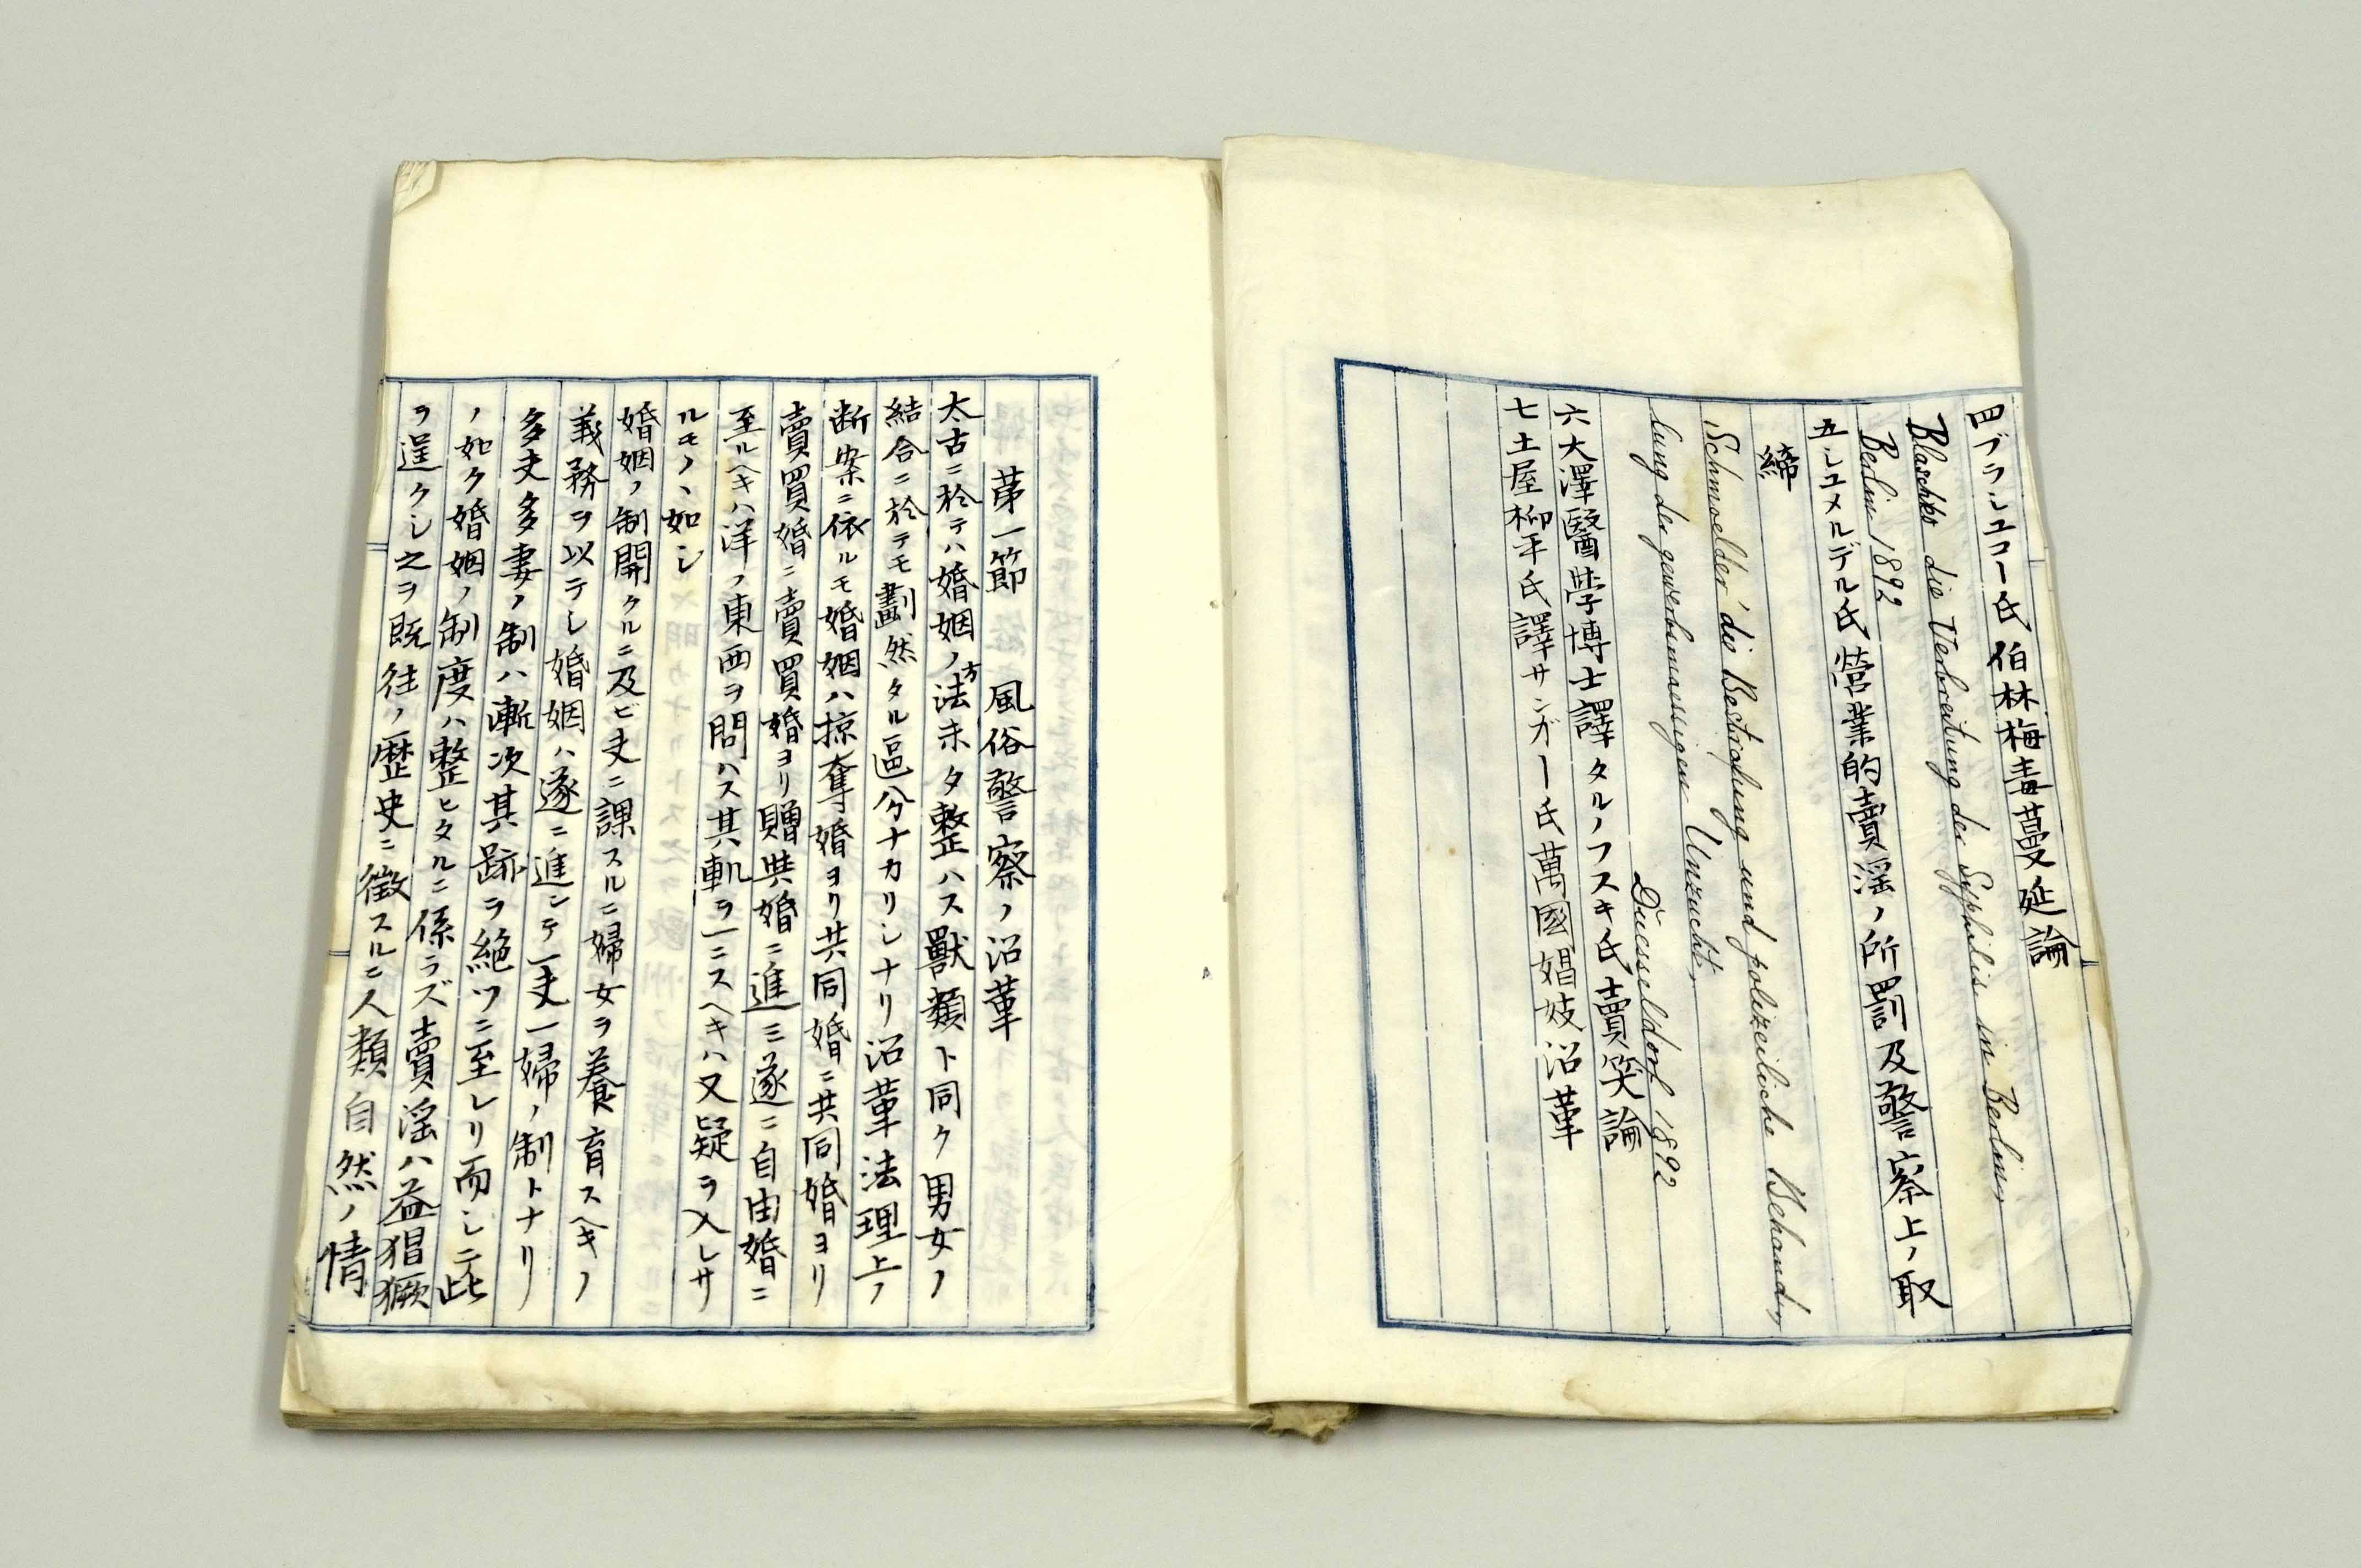 四ブラシユコー氏伯林梅毒蔓延論
Blaschko die Verbreitung der Syphilis in Berlin,
Berlin 1892
五シユメルデル氏營業的賣淫ノ所罰及警察上ノ取
締
Schmoelder die Bestrafung und polizeiliche Behand,
lung der gewerbsmaessigen Unzucht,
Duesseldorf 1892
六大澤醫学博士譯タルノフスキ氏賣笑論
七土屋柳平氏譯サンガー氏萬國娼妓沿革
第一節 風俗警察ノ沿革
太古ニ於テハ婚姻ノ方法未タ整ハス獸類ト同ク男女ノ
結合ニ於テモ劃然タル區分ナカリシナリ沿革法理上ノ
断案ニ依ルモ婚姻ハ掠奪婚ヨリ共同婚ニ共同婚ヨリ
賣買婚ニ賣買婚ヨリ贈與婚ニ進ミ遂ニ自由婚ニ
至ルヘキハ洋ノ東西ヲ問ハス其軌ヲ一ニスヘキハ又疑ヲ入レサ
ルモノヽ如シ
婚姻ノ制開クルニ及ビ夫ニ課スルニ婦女ヲ養育スヘキノ
義務ヲ以テシ婚姻ハ遂ニ進ンテ一夫一婦ノ制トナリ
多夫多妻ノ制ハ漸次其跡ヲ絶ツニ至レリ而シテ此
ノ如ク婚姻ノ制度ハ整ヒタルニ係ラズ賣淫ハ益猖獗
ヲ逞クシ之ヲ既往ノ歴史ニ徴スルニ人類自然ノ情